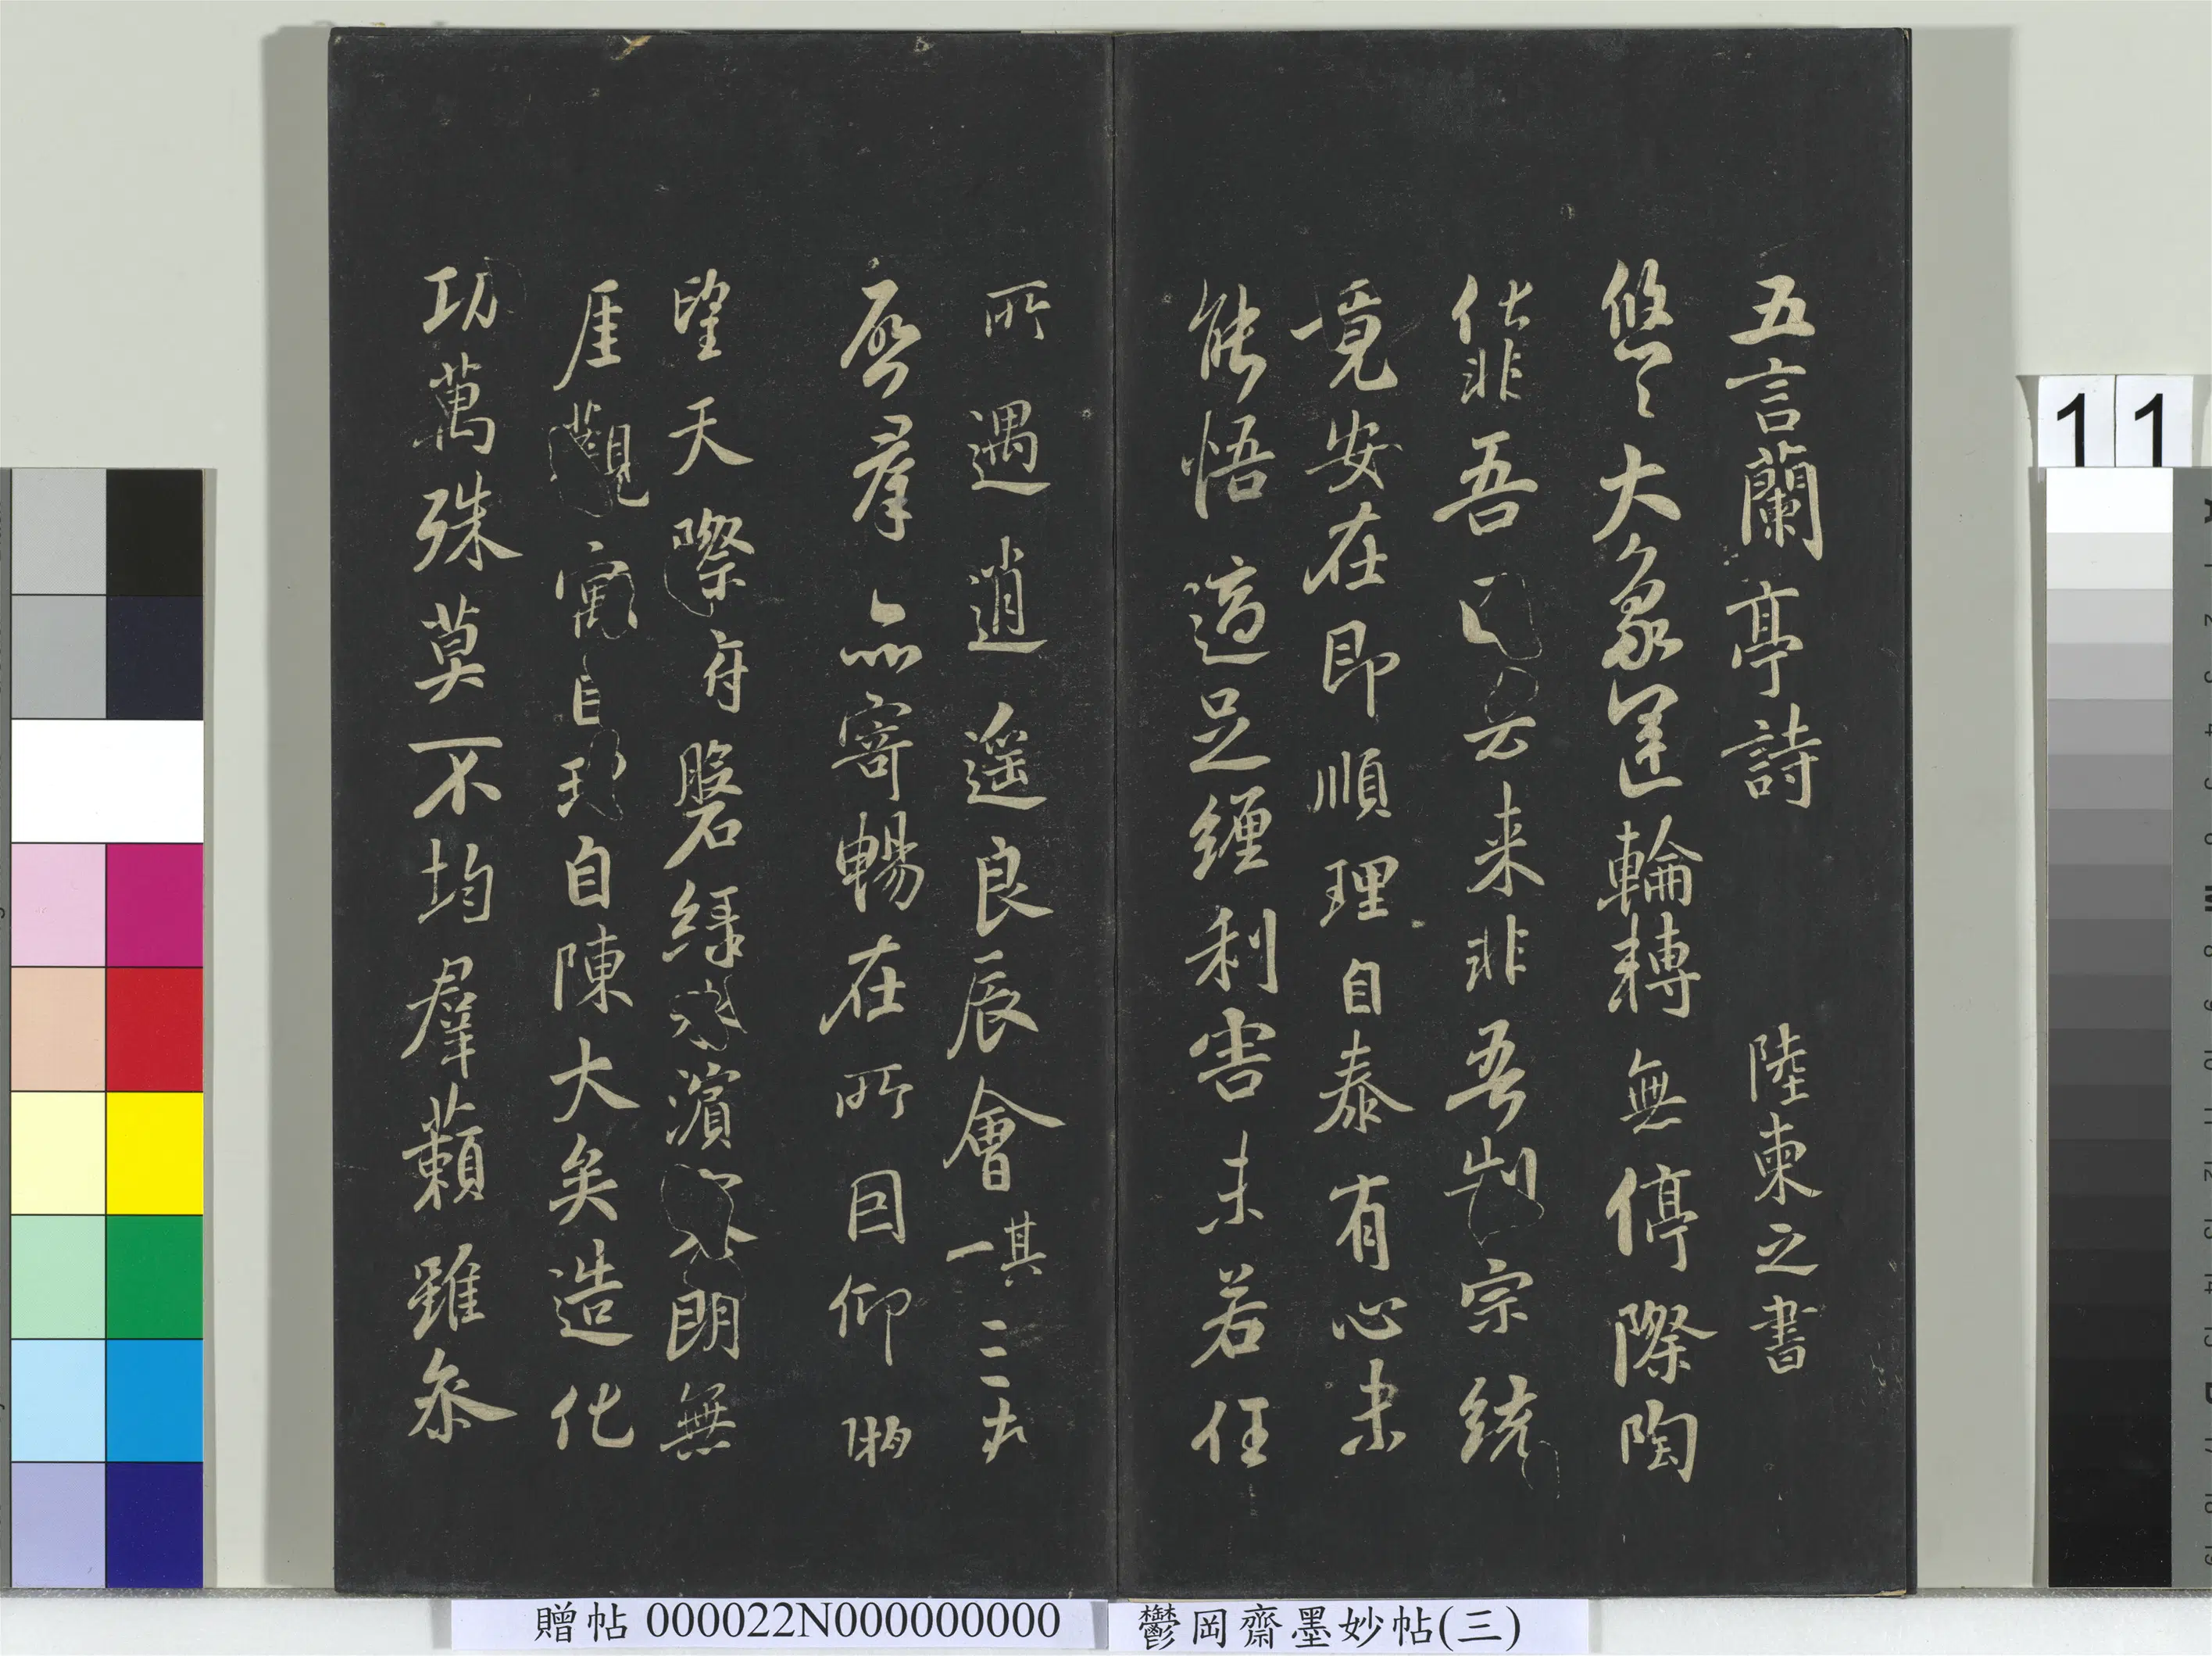 五言蘭亭詩 陸柬之書
悠〻大象運輪轉無停際陶
化非吾匠去来非吾制宗統
竟安在即順理自泰有心未
能悟適足纏利害未若任
所遇逍遥良辰會其一三春
啓羣品寄暢在所因仰眺
望天際俯磐緑水濱寥朗無
厓觀寓目理自陳大矣造化
功萬殊莫不均羣籟雖參
11
贈帖 000022N000000000
鬱岡齋墨妙帖(三)